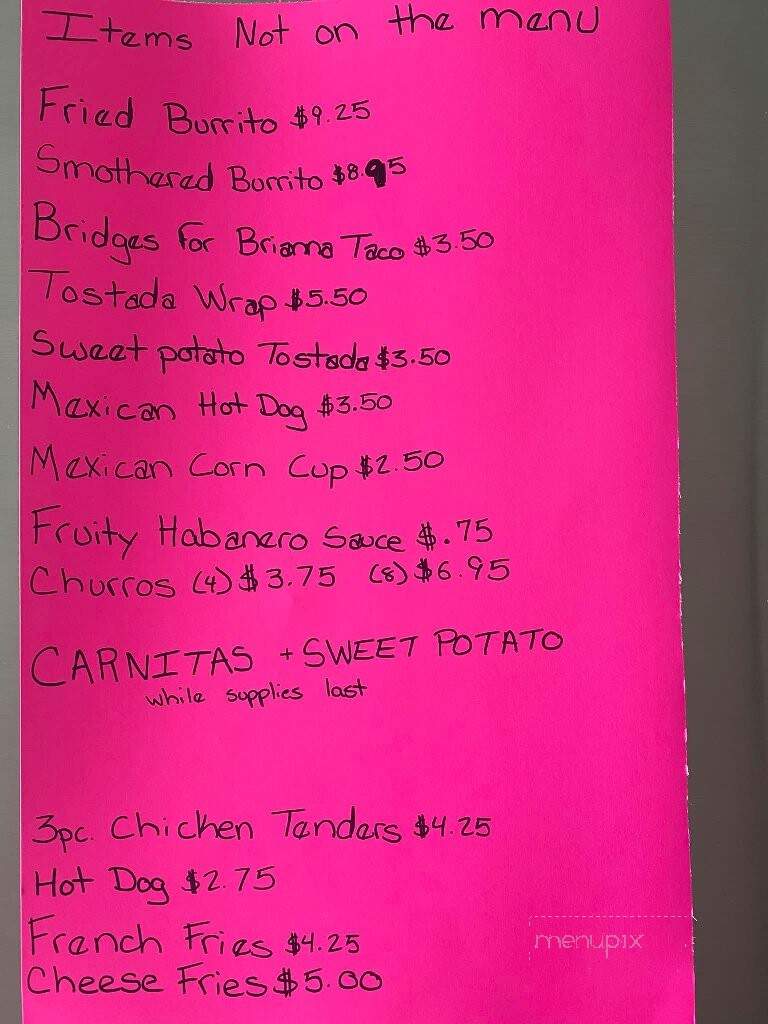 Items Not on the menu
Fried Burrito $9.25
Smothered Burrito $8.95
Bridges for Brianna Taco $3.50
Tostada Wrap $5.50
Sweet potato Tostada $3.50
Mexican Hot Dog $3.50
Mexican Corn Cup $2.50
Fruity Habanero Sauce $.75
Churros (4) $3.75 (8) $6.95
CARNITAS + SWEET POTATO
while supplies last
3pc. Chicken Tenders $4.25
Hot Dog $2.75
French Fries $4.25
Cheese Fries $5.00
menupix